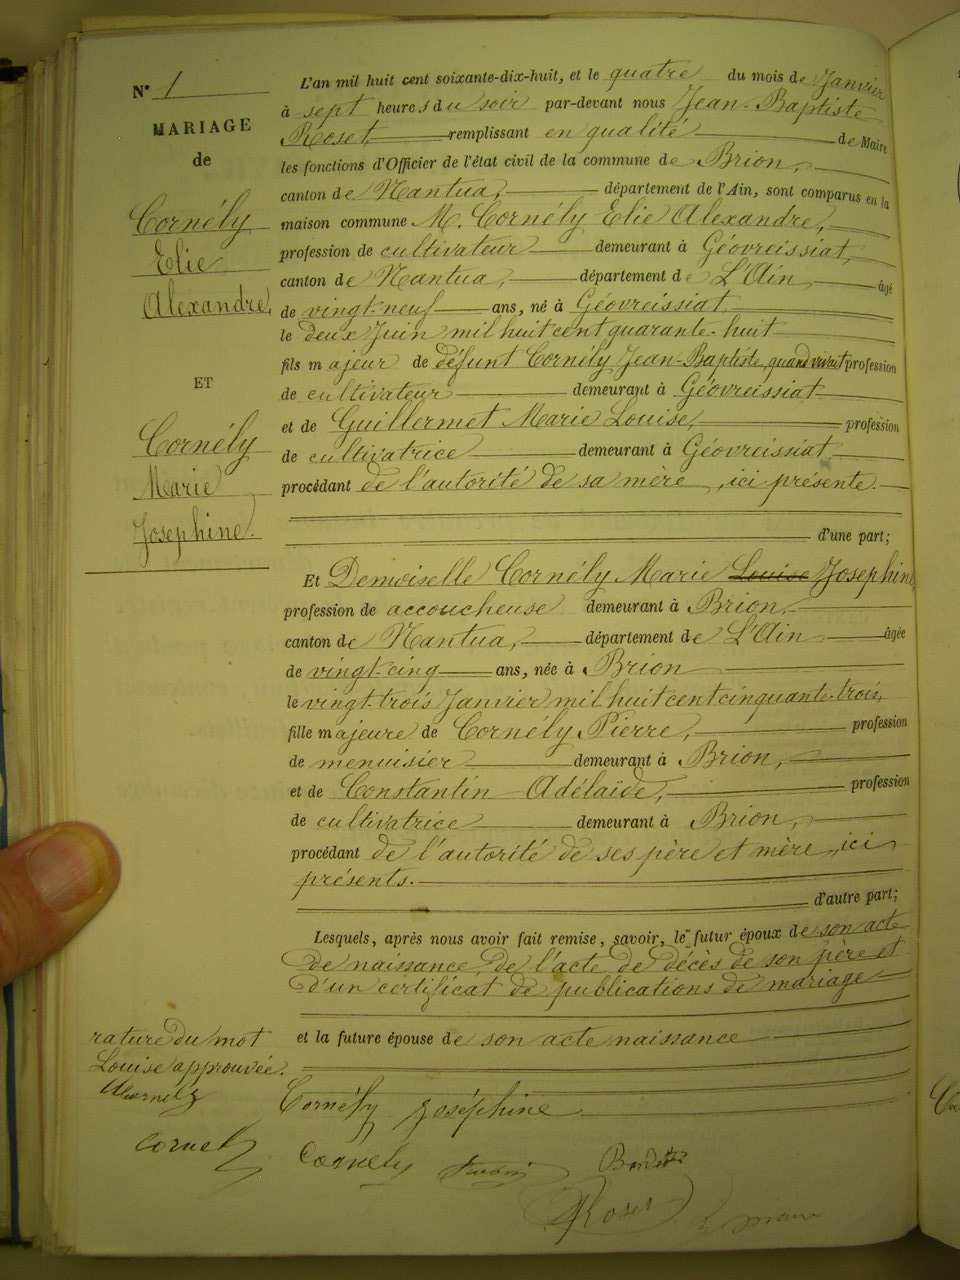 N° 1
MARIAGE
de
Cornély
Elie
Alexandre,
ET
Cornély
Marie
Josephine.
L'an mil huit cent soixante-dix-huit, et le quatre du mois de Janvier
à sept heures du soir par-devant nous Jean-Baptiste
Roset, remplissant en qualité de Maire
les fonctions d'Officier de l'état civil de la commune de Brion,
canton de Nantua, département de l'Ain, sont comparus en la
maison commune M. Cornély Elie Alexandre,
profession de cultivateur demeurant à Géovreissiat,
canton de Nantua, département de L'Ain âgé
de vingt-neuf ans, né à Géovreissiat,
le deux Juin mil huit cent quarante-huit
fils majeur de défunt Cornély Jean-Baptiste, quand vivait profession
de cultivateur demeurant à Géovreissiat
et de Guillermet Marie Louise, profession
de cultivatrice demeurant à Géovreissiat,
procédant de l'autorité de sa mère, ici présente.
d'une part;
Et Demoiselle Cornély Marie Louise Josephine
profession de accoucheuse demeurant à Brion,
canton de Nantua, département de L'Ain âgée
de vingt-cinq ans, née à Brion
le vingt-trois Janvier mil huit cent cinquante-trois,
fille majeure de Cornély Pierre, profession
de menuisier demeurant à Brion,
et de Constantin Adélaïde, profession
de cultivatrice demeurant à Brion,
procédant de l'autorité de ses père et mère, ici
présents.
d'autre part;
Lesquels, après nous avoir fait remise, savoir, le futur époux de son acte
de naissance, de l'acte de décès de son père et
d'un certificat de publications de mariage
et la future épouse de son acte naissance
rature du mot
Louise approuvée.
Cornély Joséphine
Cornely
Roset
maire